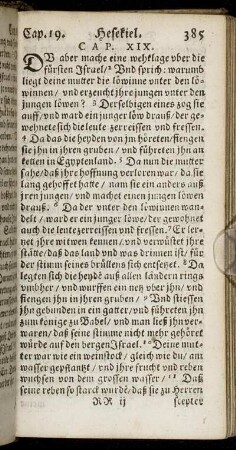 Cap. 19. Hesekiel. 385
CAP. XIX.
DV aber mache eine wehklage vber die
fürsten Israel/ ² Vnd sprich: warumb
liegt deine mutter die löwinne vnter den lö-
winnen/ vnd erzeucht jhre jungen vnter den
jungen löwen? ³ Derselbigen eines zog sie
auff/ vnd ward ein junger löw drauß/ der ge-
wehnete sich die leute zerreissen vnd fressen.
⁴ Da das die heyden von jm höreten/ fiengen
sie jhn in jhren gruben/ vnd führeten jhn an
ketten in Egyptenland. ⁵ Da nun die mutter
sahe/ daß jhr hoffnung verloren war/ da sie
lang gehoffet hatte/ nam sie ein anders auß
jren jungen/ vnd machet einen jungen löwen
drauß. ⁶ Da der vnter den löwinnen wan-
delt/ ward er ein junger löwe/ der gewohnet
auch die leute zerreissen vnd fressen. ⁷ Er ler-
net jhre witwen kennen/ vnd verwüstet jhre
stäтte/ daß das land vnd was drinnen ist/ für
der stimm seines brüllens sich entsetzet. ⁸ Da
legten sich die heydē auß allen ländern rings
vmbher/ vnd wurffen ein netz vber jhn/ vnd
fiengen jhn in jhren gruben/ ⁹ Vnd stiessen
jhn gebunden in ein gatter/ vnd führeten jhn
zum könige zu Babel/ vnd man ließ jhn ver-
waren/ daß seine stimme nicht mehr gehöret
würde auf den bergen Israel. ¹⁰ Deine mut-
ter war wie ein weinstock/ gleich wie du/ am
wasser gepflantzt/ vnd jhre frucht vnd reben
wuchsen von dem grossen wasser/ ¹¹ Daß
seine reben so starck wurdē/ daß sie zu Herren
RR ij scepter